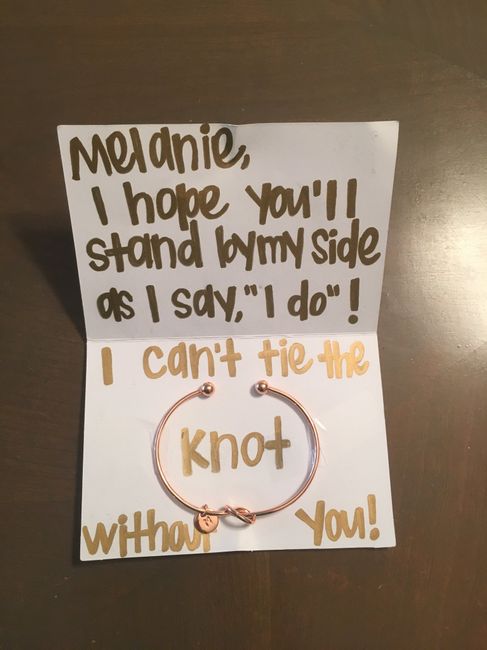 Melanie,
I hope you'll
stand by my side
as I say, "I do"!
I can't tie the
knot
without you!